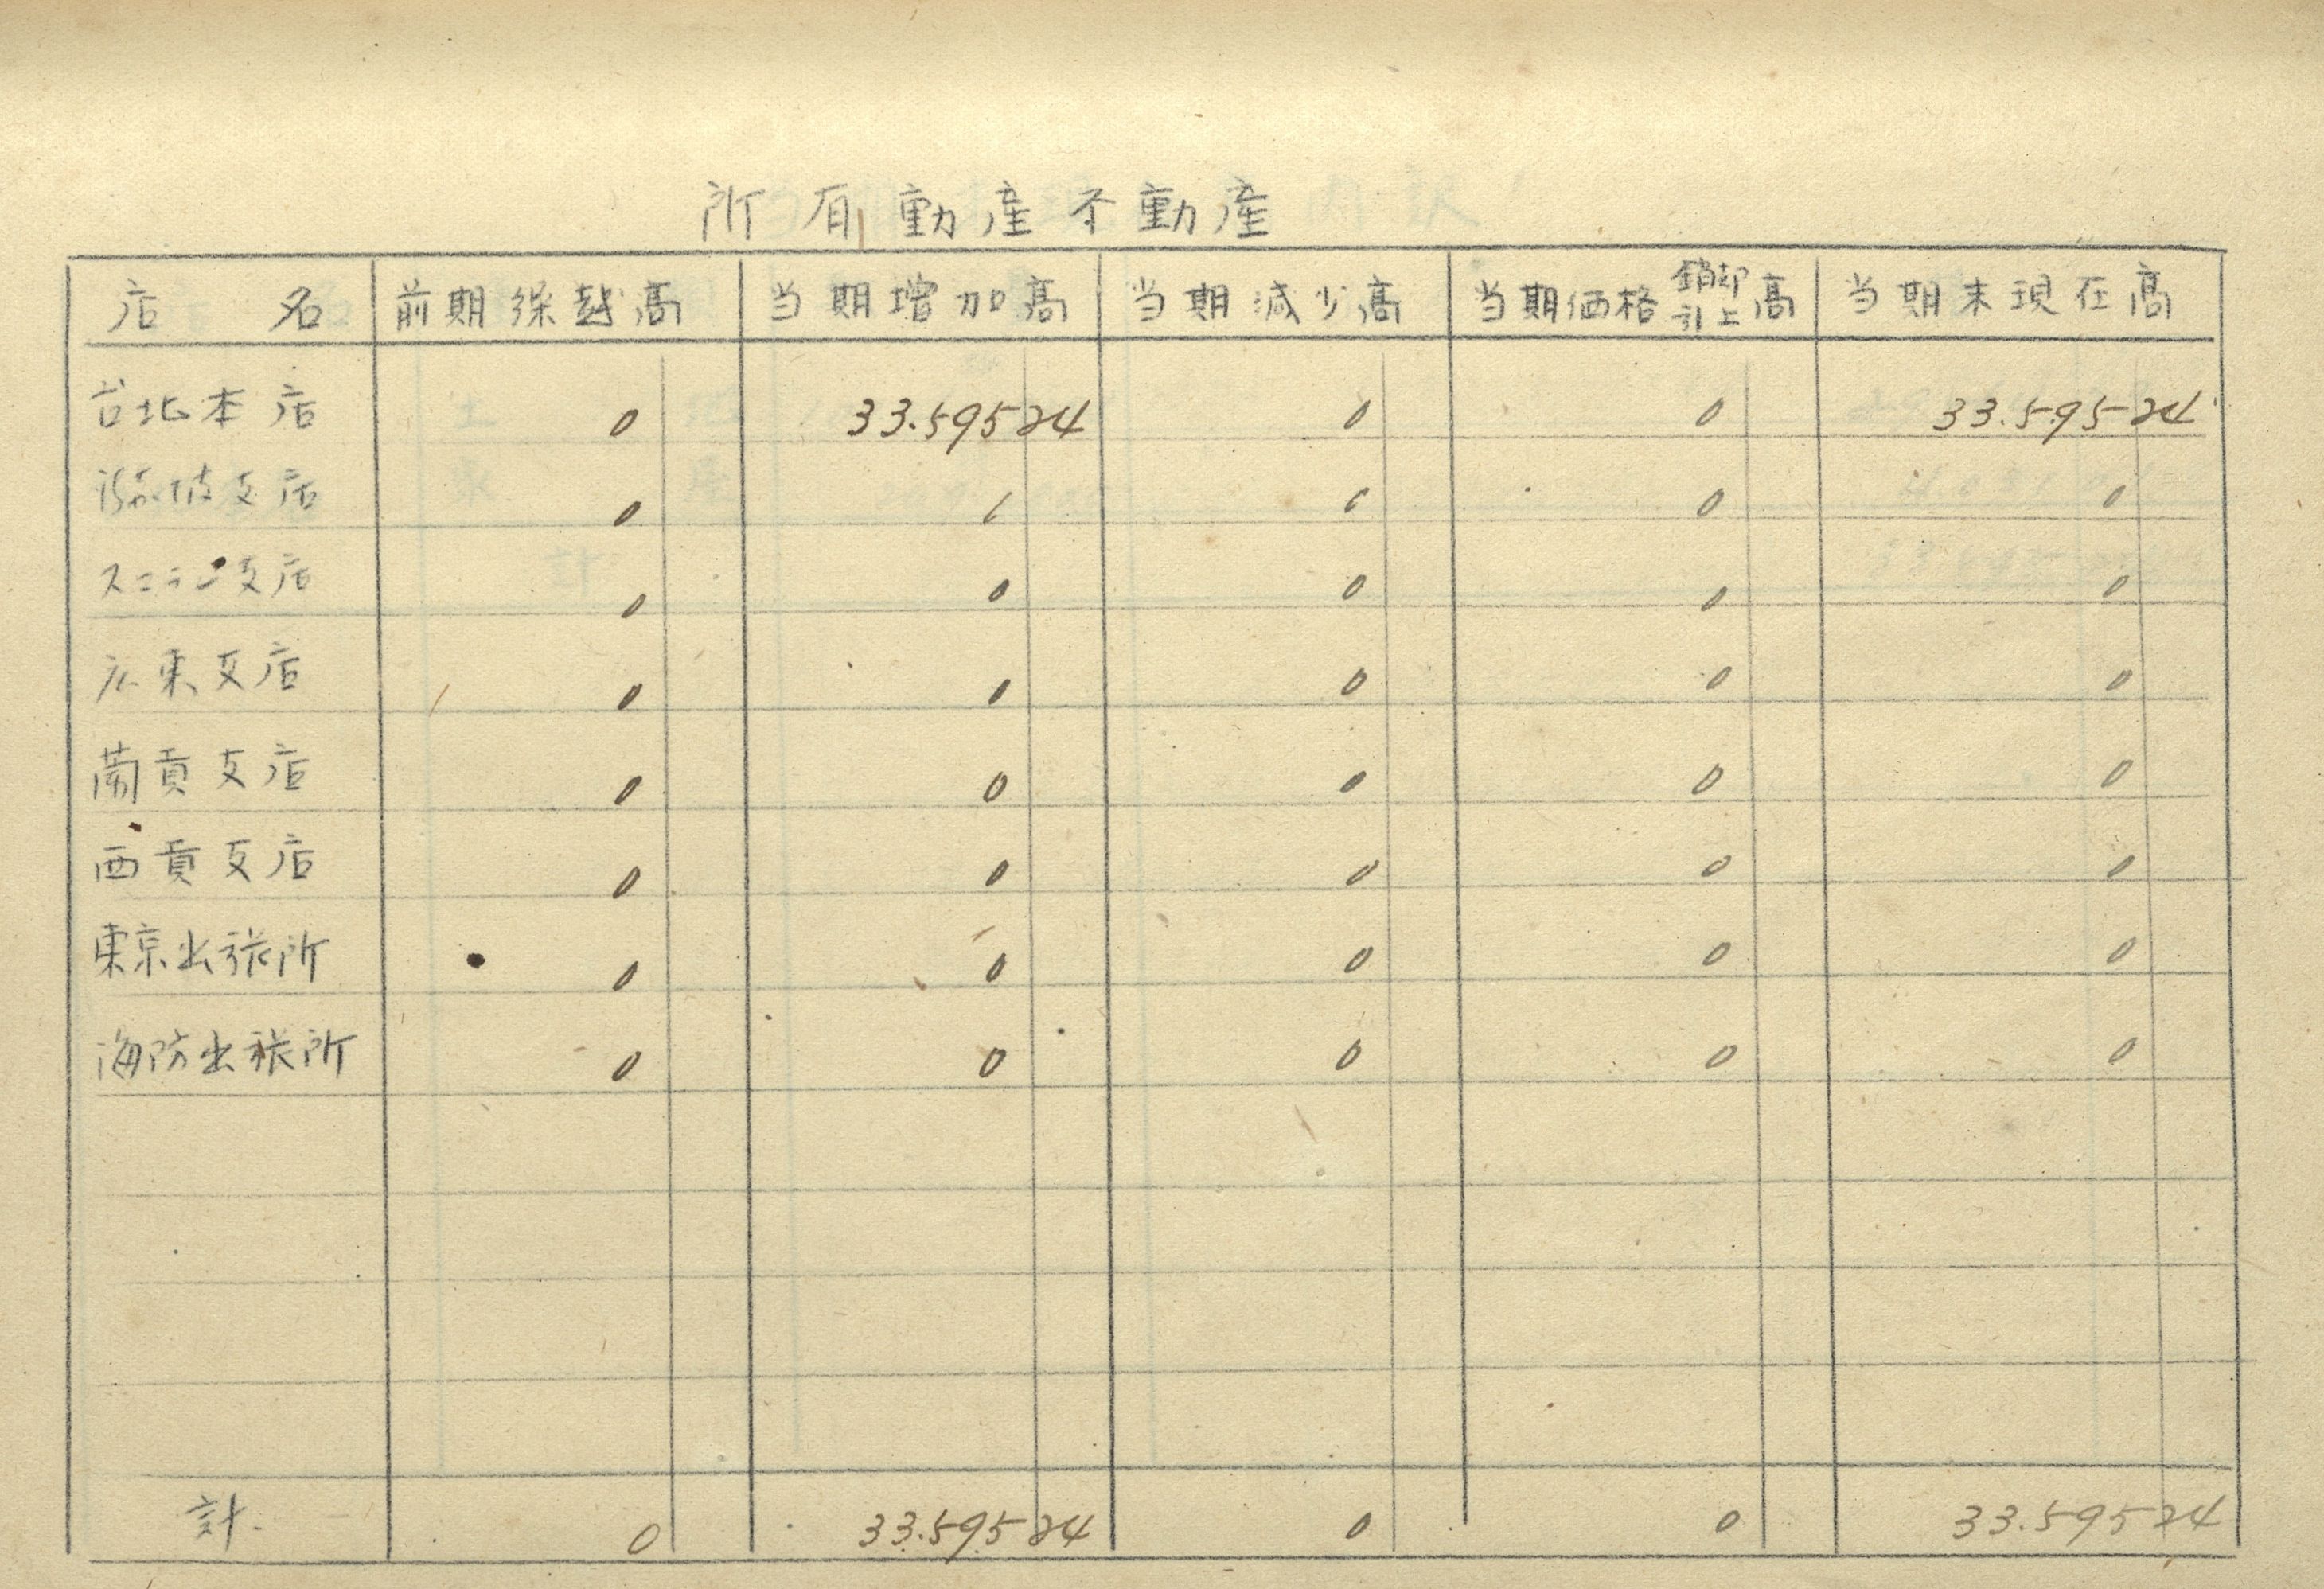 所有動産不動産
店名 前期繰越高 当期増加高 当期減少高 当期価格銷却引上高 当期末現在高
台北本店 0 33.595 24 0 0 33.595 24
支店 0 0 0
スマラン支店 0 0 0 0 0
広東支店 0 0 0 0 0
蘭貢支店 0 0 0 0 0
西貢支店 0 0 0 0 0
東京出張所 0 0 0 0 0
海防出張所 0 0 0 0 0
計 0 33.595 24 0 0 33.595 24